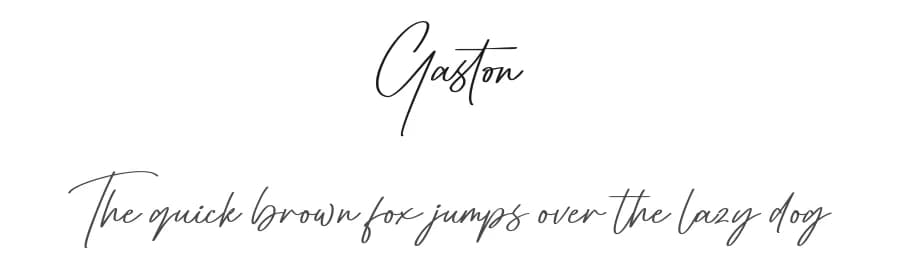 Gaston
The quick brown fox jumps over the lazy dog